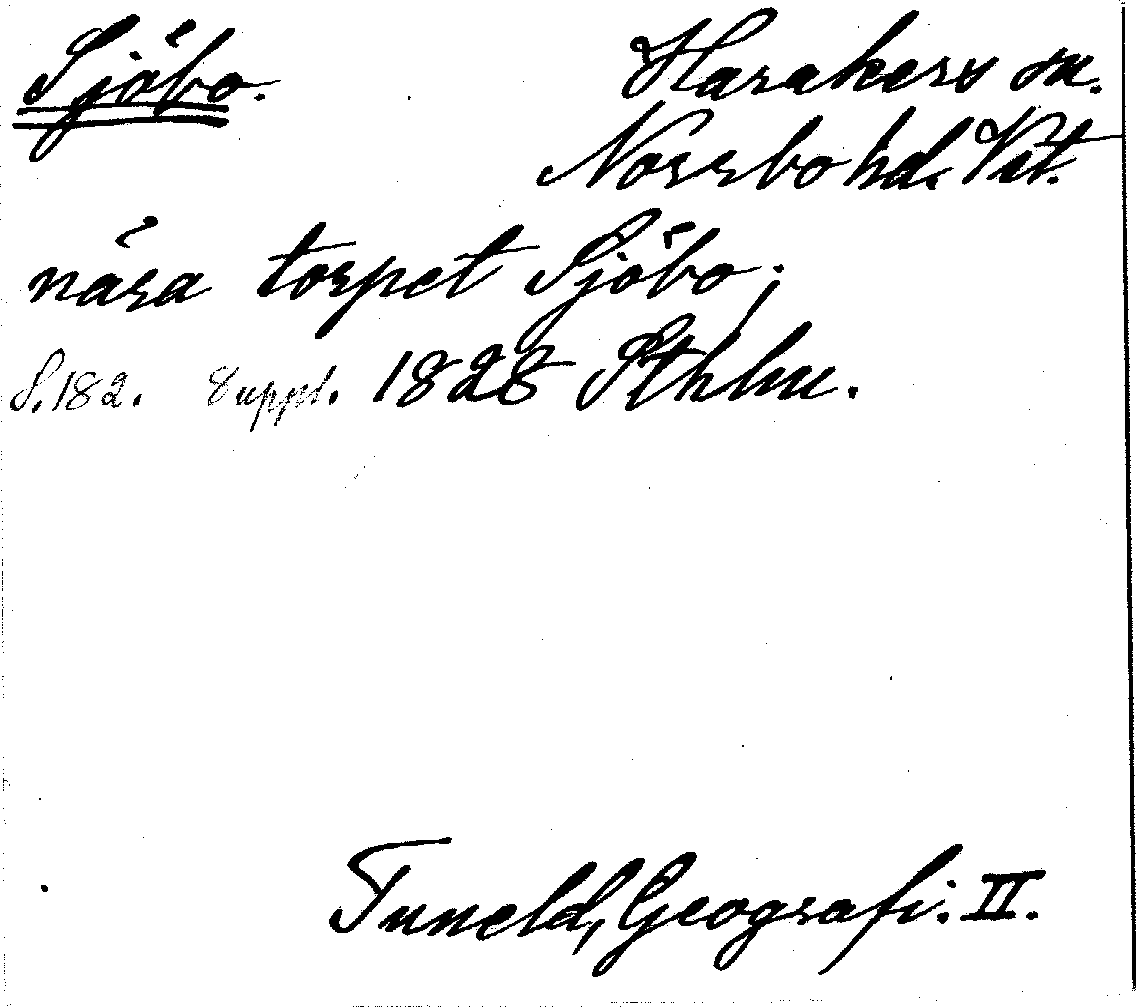 Sjöbo.
Harakers sn.
Norrbo hd. Vst.
nära torpet Sjöbo;
S. 182. Suppl. 1828 Sthlm.
Tuneld, Geografi. II.